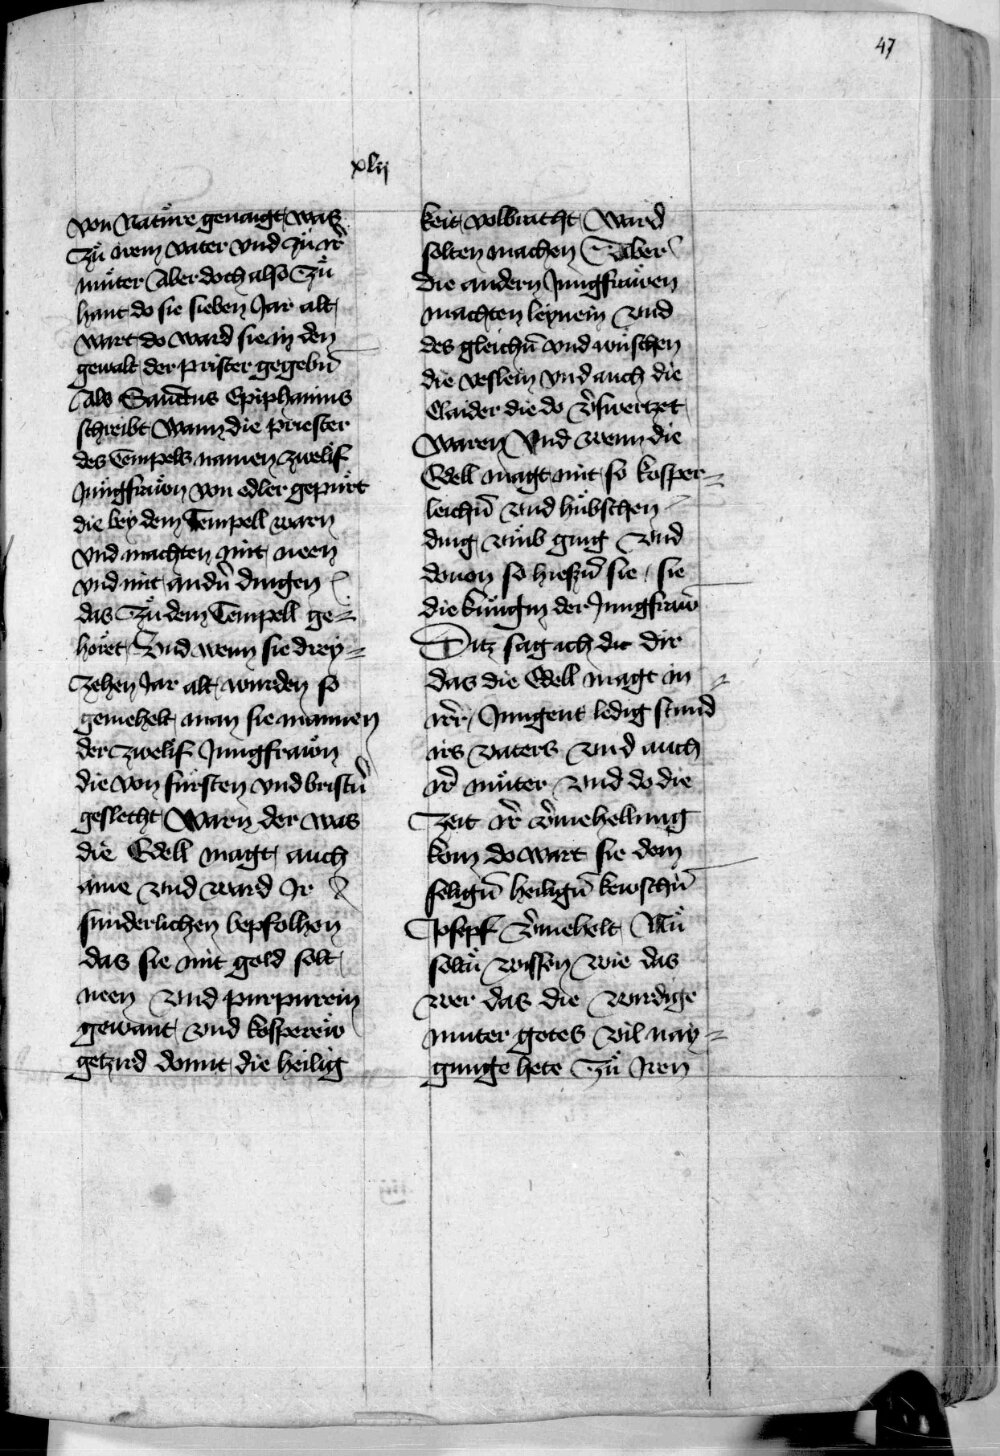 47
xlij
von Natůre genaigt was
Zů irem vater vnd zů ir̃
můter Aber doch also Zů
hant do sie sieben Jar alt
wart do ward sie in den
gewalt der prister gegebn̄
Als Sanctus Epiphanius
schreibt Wann die priester
des Tempels namen zwelif
Jungfrawen von edler gepůrt
die bey dem Tempell warn
vnd machten mit neen
vnd mit andn̄ dingen
das Zů dem Tempell ge-
hőret Vnd wenn sie drey-
Zehen Jar alt wurden so
gemehelt man sie mannen
der zwelif Jungfrawen
die von fürsten vnd bristn̄
geslecht Warn der was
die Edell magt auch
aine vnd ward Ir
sunderlichen bepfolhen
das sie mit gold solt
neen vnd purpurein
gewant vnd kosperew
getzird domit die heilig
keit volbracht Ward
solten machen Aber
die andern Jungfrawen
machten leynein vnd
des gleichn̄ vnd wůschen
die veslein vnd auch die
Claider die do v̄swertzet
Waren Vnd wenn die
Edell magt mit so kosper-
leichn̄ vnd hůbschen
ding vmb ging Vnd
douon so hiesn̄ sie sie
die kůngin der Jungfraw
Ditz sag ich dir
das die Edell magt in
irr̄ Jungent ledig stund
irs vaters vnd auch
ir̄ můter vnd do die
Zeit ir̄ v̄mehellung
kom do wart sie dem
selign̄ heilign̄ kewschn̄
Josepf v̄mehelt Nů
soltů wissen wie das
wer das die wirdige
muter gotes vil nay-
gunge hete Zů Iren